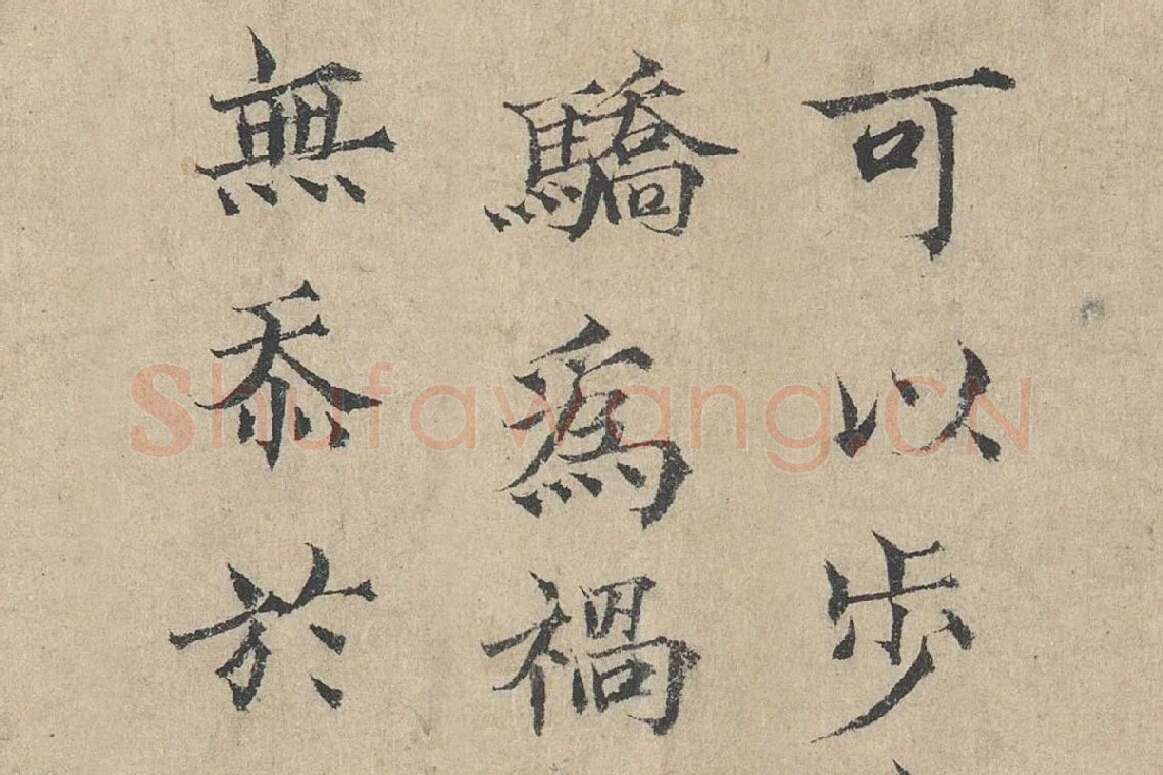 可以步
驕爲禍
無忝於
Shufawang.CN